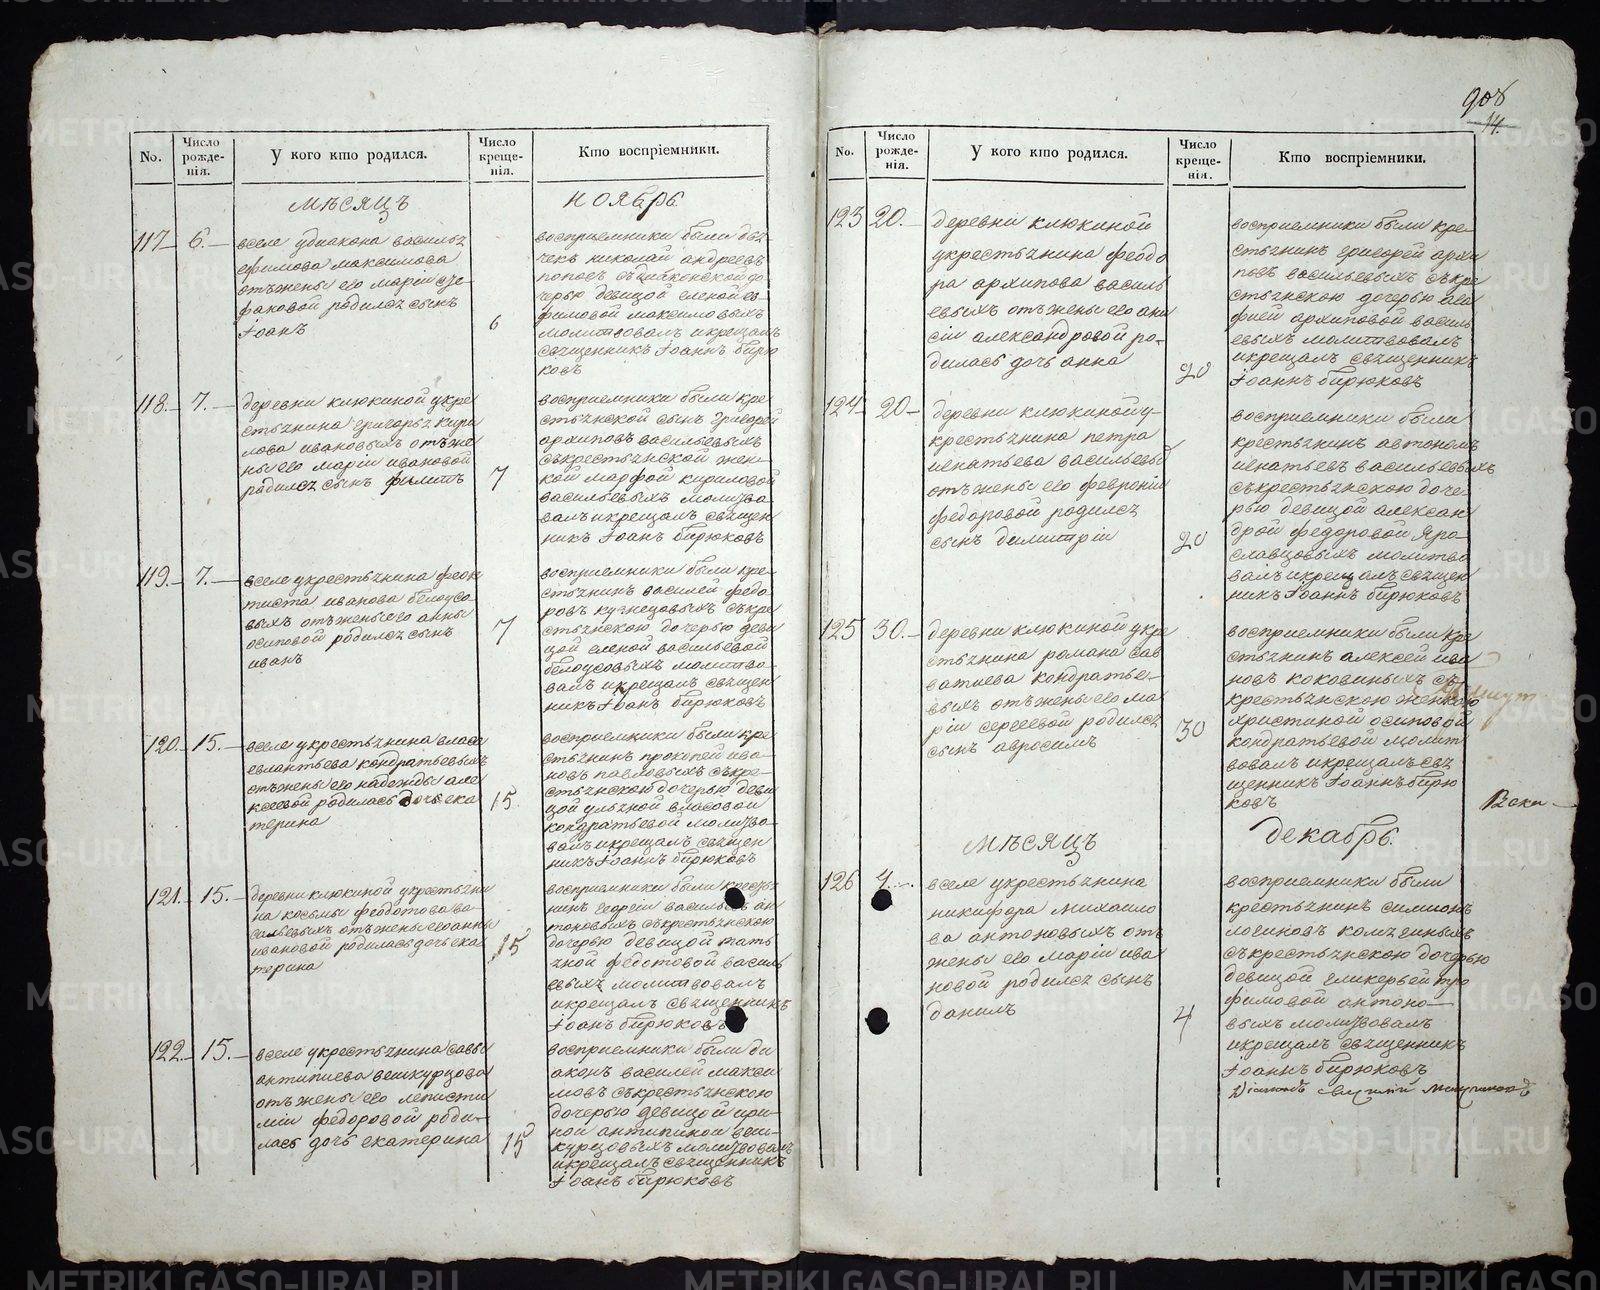 908
14.
No.
Число рожде-нія.
У кого кто родился.
Число креще-нія.
Кто воспріемники.
мѣсяцъ
ноябрь
117
6.
вселе удиакона василья
ефимова максимова
отъжены его маріи сте-
фановой родился сынъ
Іоанъ
6
восприемники были дья-
чекъ николай андреевъ
поповъ
дочерью девицой еленой ев-
фимовой максимовыхъ
молитвовалъ икрещалъ
священникъ Іоаннъ бирю
ковъ
118.
7.
деревни клюкиной укре
стьянина григорья кири
лова ивановыхъ отъже
ны его маріи ивановой
родился сынъ филипъ
7
восприемники были кре
стьянской сынъ григорей
архиповъ васильевыхъ
съкрестьянской жен-
кой марфой кириловой
васильевыхъ молитво
валъ икрещалъ священ
никъ Іоанъ бирюковъ
119.
7.
вселе укрестьянина феок
тиста иванова белоусо-
выхъ отъжены его анны
осиповой родился сынъ
иванъ
7
восприемники были кре-
стьянинъ василей федо
ровъ кузнецовыхъ съкре
стьянскою дочерью деви
цой еленой васильевой
белоусовыхъ молитво-
валъ икрещалъ священ
никъ Іоанъ бирюковъ
120.
15.
вселе укрестьянина власа
евлантьева кондратьевыхъ
отъжены его надежды але
ксеевой родилась дочь ека
терина
15
восприемники были кре
стьянинъ прокопей ива-
новъ павловыхъ съкре-
стьянскою дочерью деви
цой ульяной власовой
кондратьевой молитво-
валъ икрещалъ священ
никъ Іоанъ бирюковъ
121.
15.
деревни клюкиной укрестьяни
на косьмы федотова ва-
сильевыхъ отъжены его анны
ивановой родилась дочь ека
терина
15
восприемники были крестья
нинъ георгіи васильевъ ан
тоновыхъ съкрестьянскою
дочерью девицой тать
яной федотовой василь
евыхъ молитвовалъ
икрещалъ священникъ
Іоанъ бирюковъ
122.
15.
вселе укрестьянина саввы
антипиева вешкурцова
отъжены его леписти
міи федоровой роди-
лась дочь екатерина
15
восприемники были ди
аконъ василей макси
мовъ съкрестьянскою
дочерью девицой ири-
ной антипиной веш-
курцовыхъ молитвовалъ
икрещалъ священникъ
Іоанъ бирюковъ
No.
Число рожде-нія.
У кого кто родился.
Число креще-нія.
Кто воспріемники.
123
20.
деревни клюкиной
укрестьянина феодо
ра архипова василь
евыхъ отъжены его ани
сіи александровой ро-
дилась дочь анна
20
восприемники были кре-
стьянинъ григорей архи
повъ васильевыхъ съкре
стьянскою дочерью ага
фией архиповой василь
евыхъ молитвовалъ
икрещалъ священникъ
Іоаннъ бирюковъ
124
20
деревни клюкиной у-
крестьянина петра
игнатьева васильевы
отъжены его февроніи
федоровой родился
сынъ димитріи
20
восприемники были
крестьянинъ автономъ
игнатьевъ васильевыхъ
съкрестьянскою доче-
рью девицой алексан
дрой федоровой яро
славцовыхъ молитво
валъ икрещалъ священ
никъ Іоаннъ бирюковъ
125
30.
деревни клюкиной укре
стьянина романа сав
ватиева кондратье-
выхъ отъжены его ма
ріи сергеевой родился
сынъ авросимъ
30
восприемники были кре
стьянинъ алексей ива
новъ коковиныхъ съ
крестьянскою женкою
христиной осиповой
кондратьевой молит
вовалъ икрещалъ свя
щенникъ Іоаннъ бирю
ковъ
мѣсяцъ
декабрь.
126
4.
вселе укрестьянина
никифора михаило
ва антоновыхъ отъ
жены его маріи ива
новой родился сынъ
данилъ
4
восприемники были
крестьянинъ симионъ
логиновъ
съкрестьянскою дочерью
девицой гликерьей тро
фимовой антоно-
выхъ молитвовалъ
икрещалъ священникъ
Іоаннъ бирюковъ